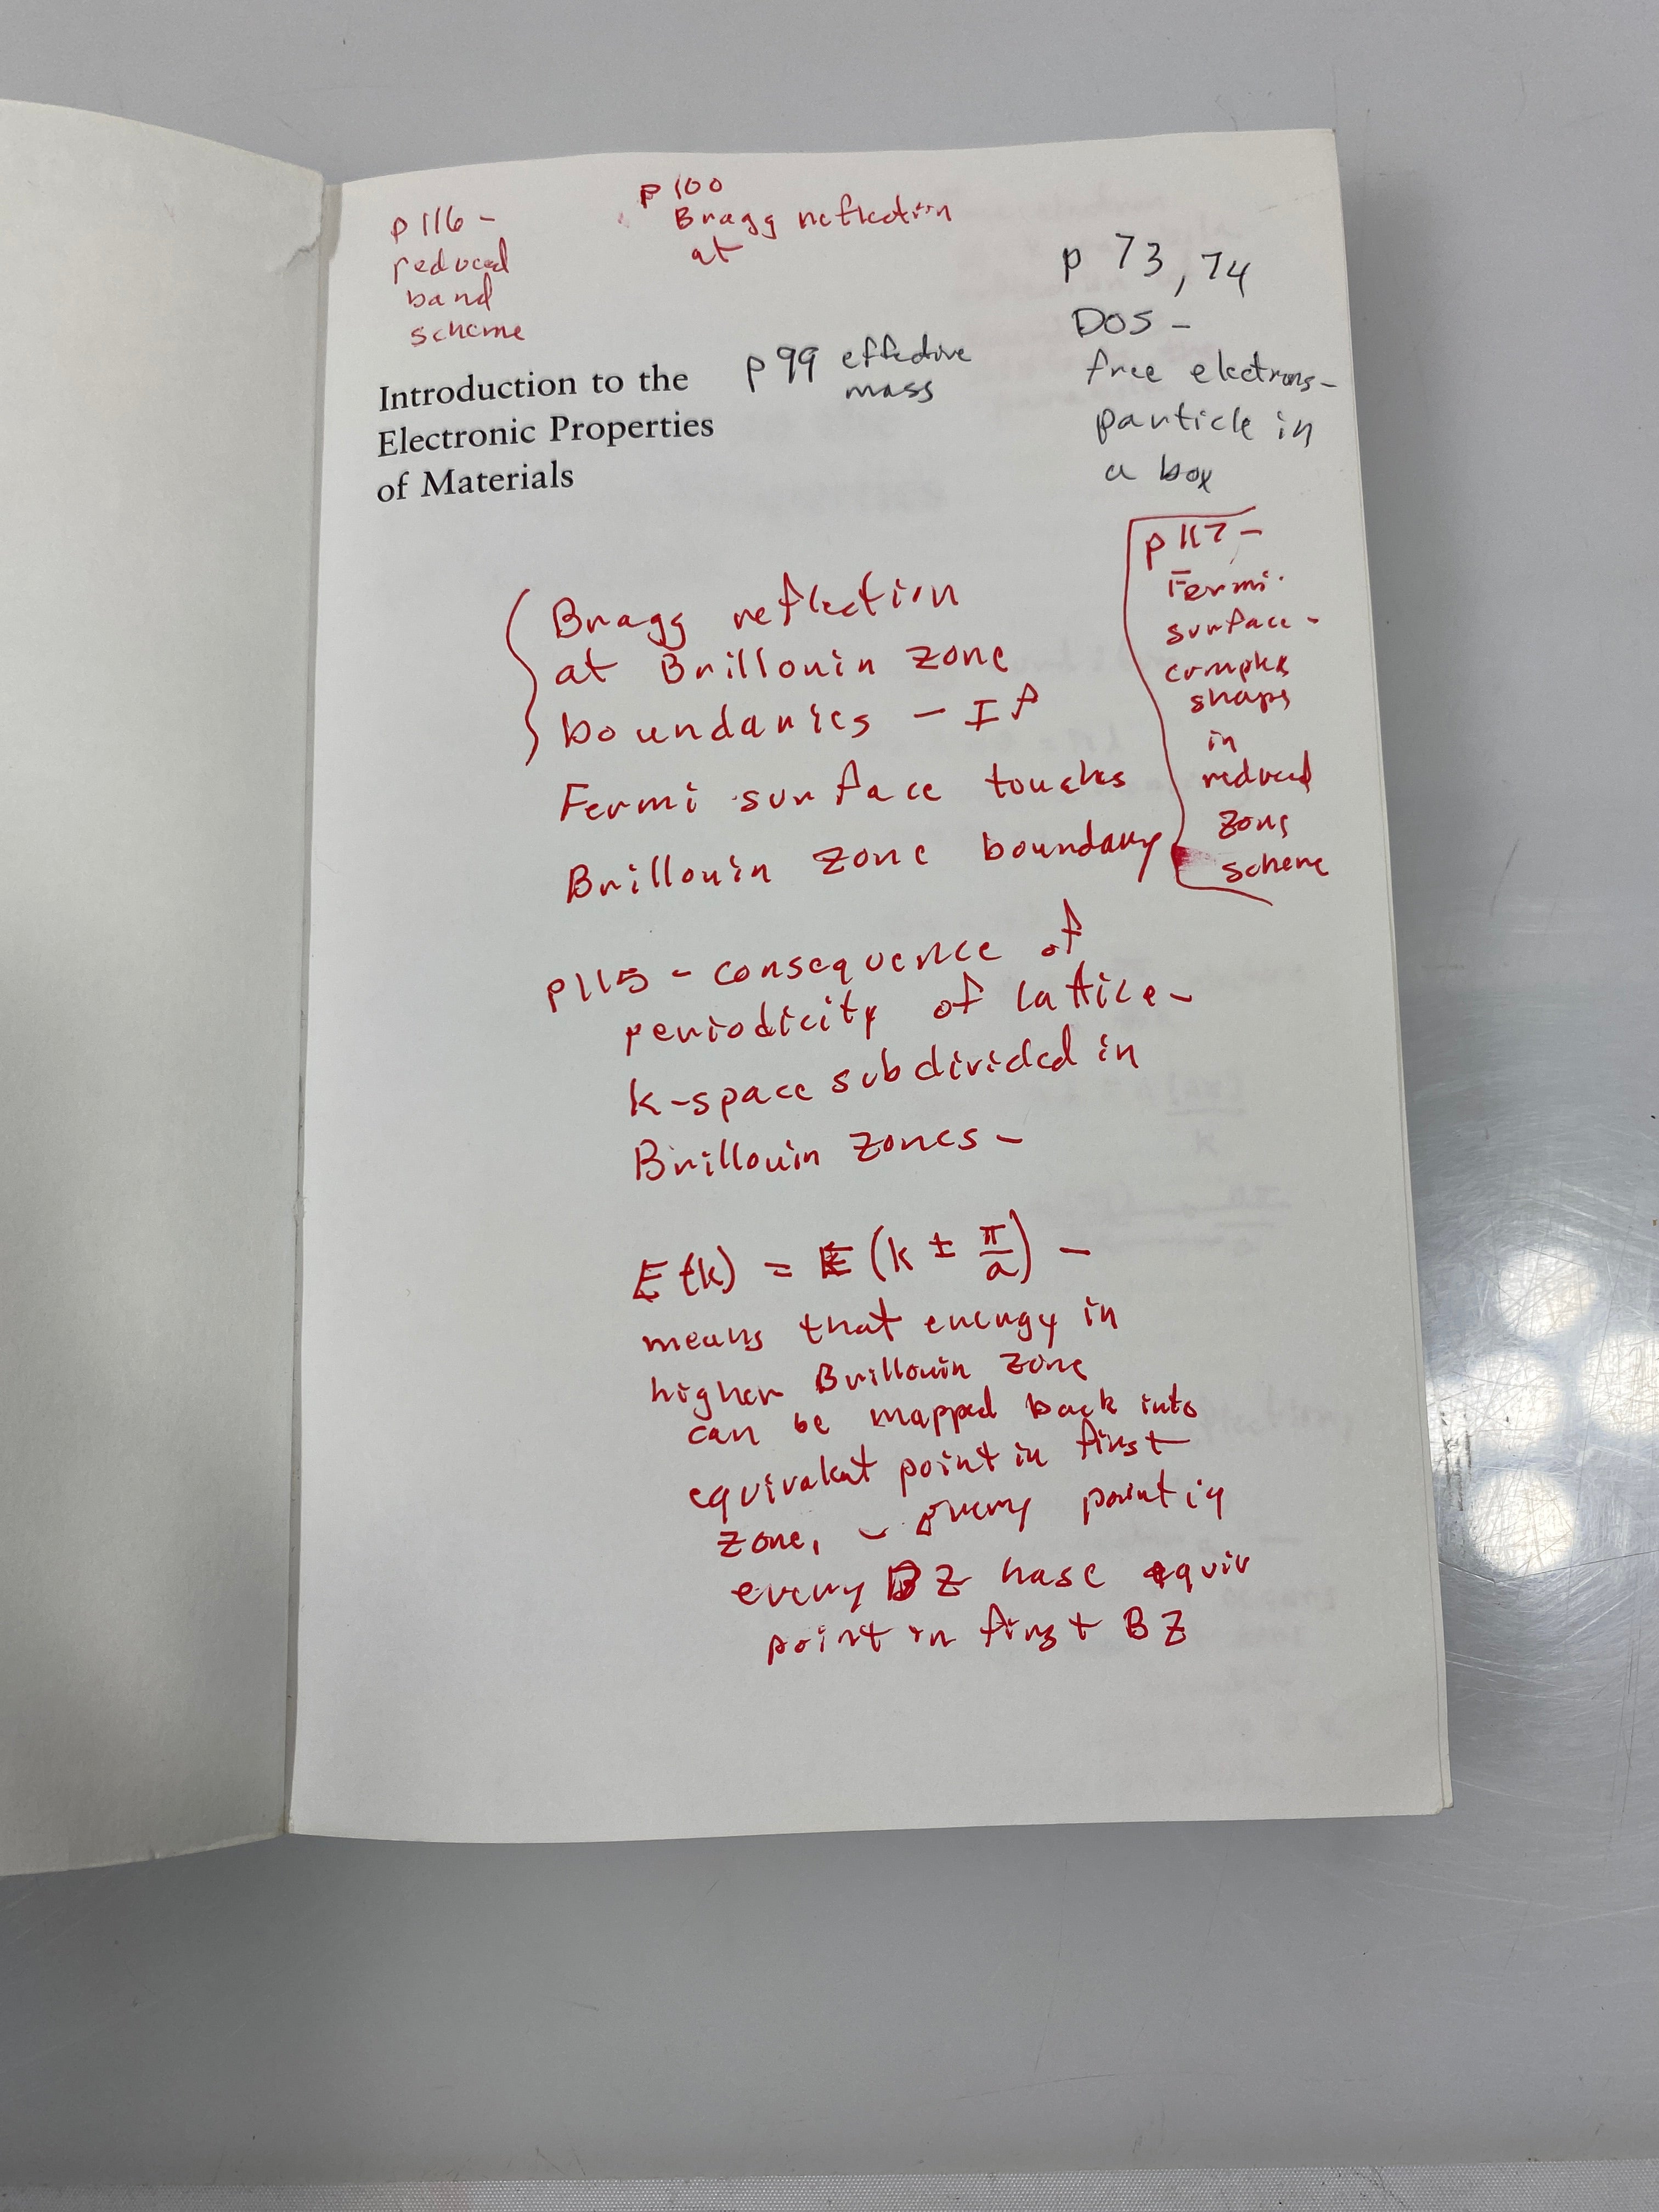 p 116 -
reduced
band
scheme
p 100
Bragg reflection
at
p 73, 74
DOS -
free electrons -
particle in
a box
p 99 effective
mass
Introduction to the
Electronic Properties
of Materials
p 117 -
Fermi
surface -
complex
shaps
in
reduced
zone
scheme
Bragg reflection
at Brillouin zone
boundaries - If
Fermi surface touches
Brillouin zone boundary
p115 - consequence of
periodicity of lattice -
k-space subdivided in
Brillouin zones -
E(k) = E (k ± π/a) -
means that energy in
higher Brillouin zone
can be mapped back into
equivalent point in first
zone, - every point in
every BZ hase equiv
point in first BZ